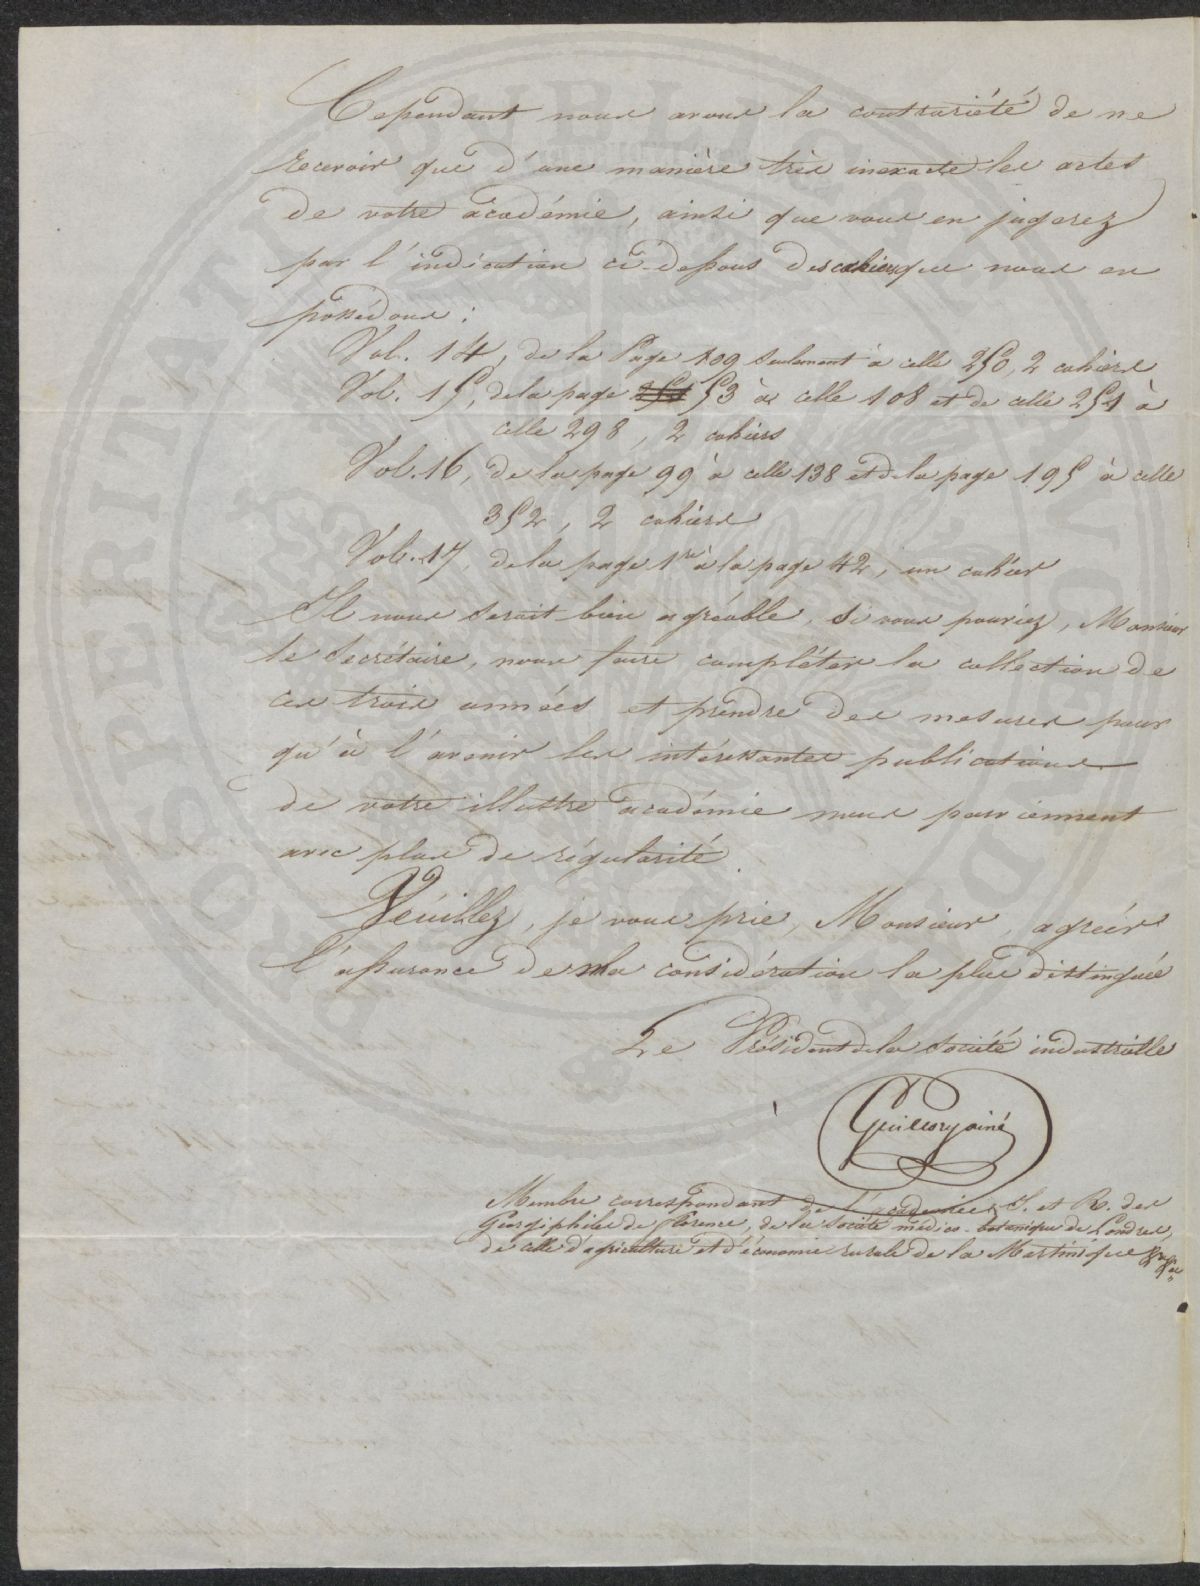 Cependant nous avons la contrariété de ne
recevoir que d'une manière très inexacte les actes
de votre académie, ainsi que vous en jugerez
par l'indication ci-dessous des cahiers que nous en
possédons :
Vol. 14, de la Page 109 seulement à celle 250, 2 cahiers
Vol. 15, de la page 53 à celle 108 et de celle 251 à
celle 298, 2 cahiers
Vol. 16, de la page 99 à celle 138 et de la page 195 à celle
352, 2 cahiers
Vol. 17, de la page 1re à la page 42, un cahier
Il nous serait bien agréable, si vous pouviez, Monsieur
le Secrétaire, nous faire compléter la collection de
ces trois années et prendre des mesures pour
qu'à l'avenir les intéressantes publications
de votre illustre académie nous parviennent
avec plus de régularité
Veuillez, je vous prie, Monsieur, agréer
l'assurance de ma considération la plus distinguée
Le Président de la Société industrielle
Guillory aîné
Membre correspondant de l'académie I. et R. des
Géorgiphiles de Florence, de la Société médico-botanique de Londres,
de celle d'agriculture et d'économie rurale de la Martinique
PROSPERITATI PUBLICAE